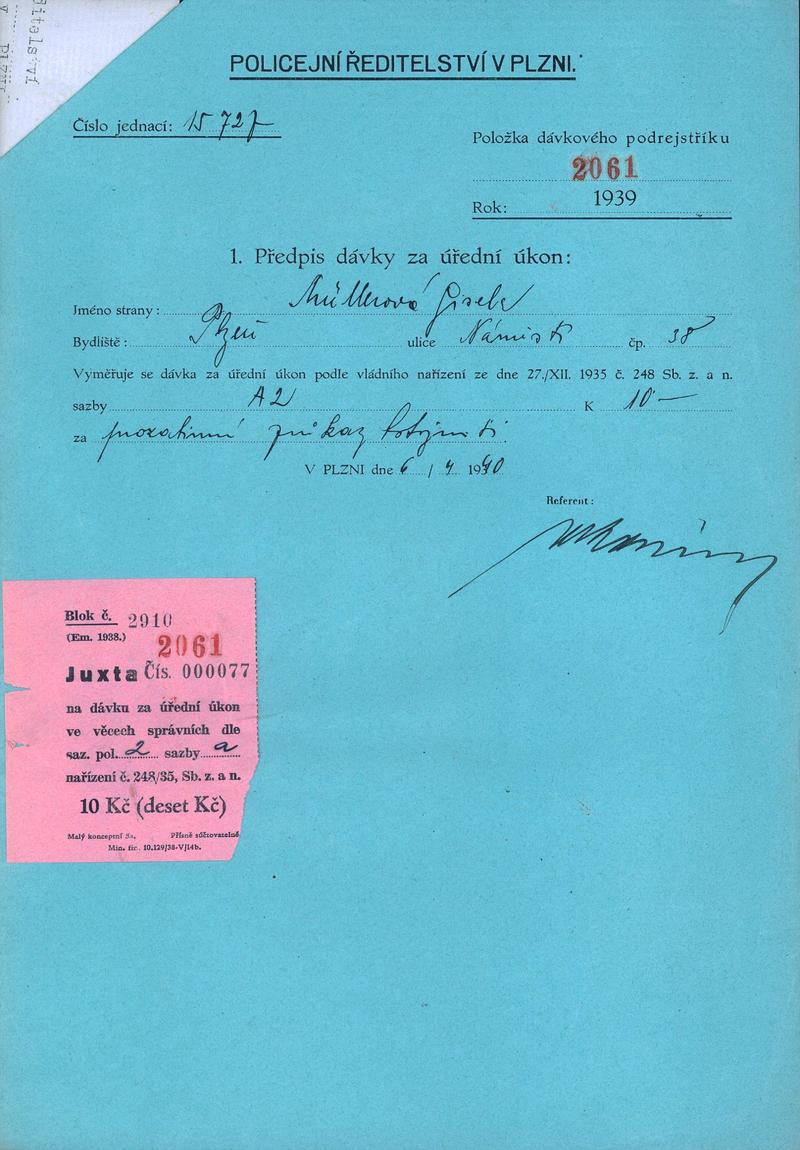 itelství
v Plzni
POLICEJNÍ ŘEDITELSTVÍ V PLZNI.
Číslo jednací: 15727
Položka dávkového podrejstříku
2061
Rok: 1939
1. Předpis dávky za úřední úkon:
Jméno strany: Müllerová Gisela
Bydliště: Plzeň ulice Náměstí čp. 38
Vyměřuje se dávka za úřední úkon podle vládního nařízení ze dne 27./XII. 1935 č. 248 Sb. z. a n.
sazby A2 K 10-
za prozatimní průkaz totožnosti
V PLZNI dne 6/4 1940
Referent:
Blok č. 2910
(Em. 1938.) 2061
Juxta Čís. 000077
na dávku za úřední úkon
ve věcech správních dle
saz. pol. 2 sazby a
nařízení č. 248/35, Sb. z. a n.
10 Kč (deset Kč)
Malý konceptní 3a. Přísně súčtovatelné
Min. fin. 10.129/38-V/14b.